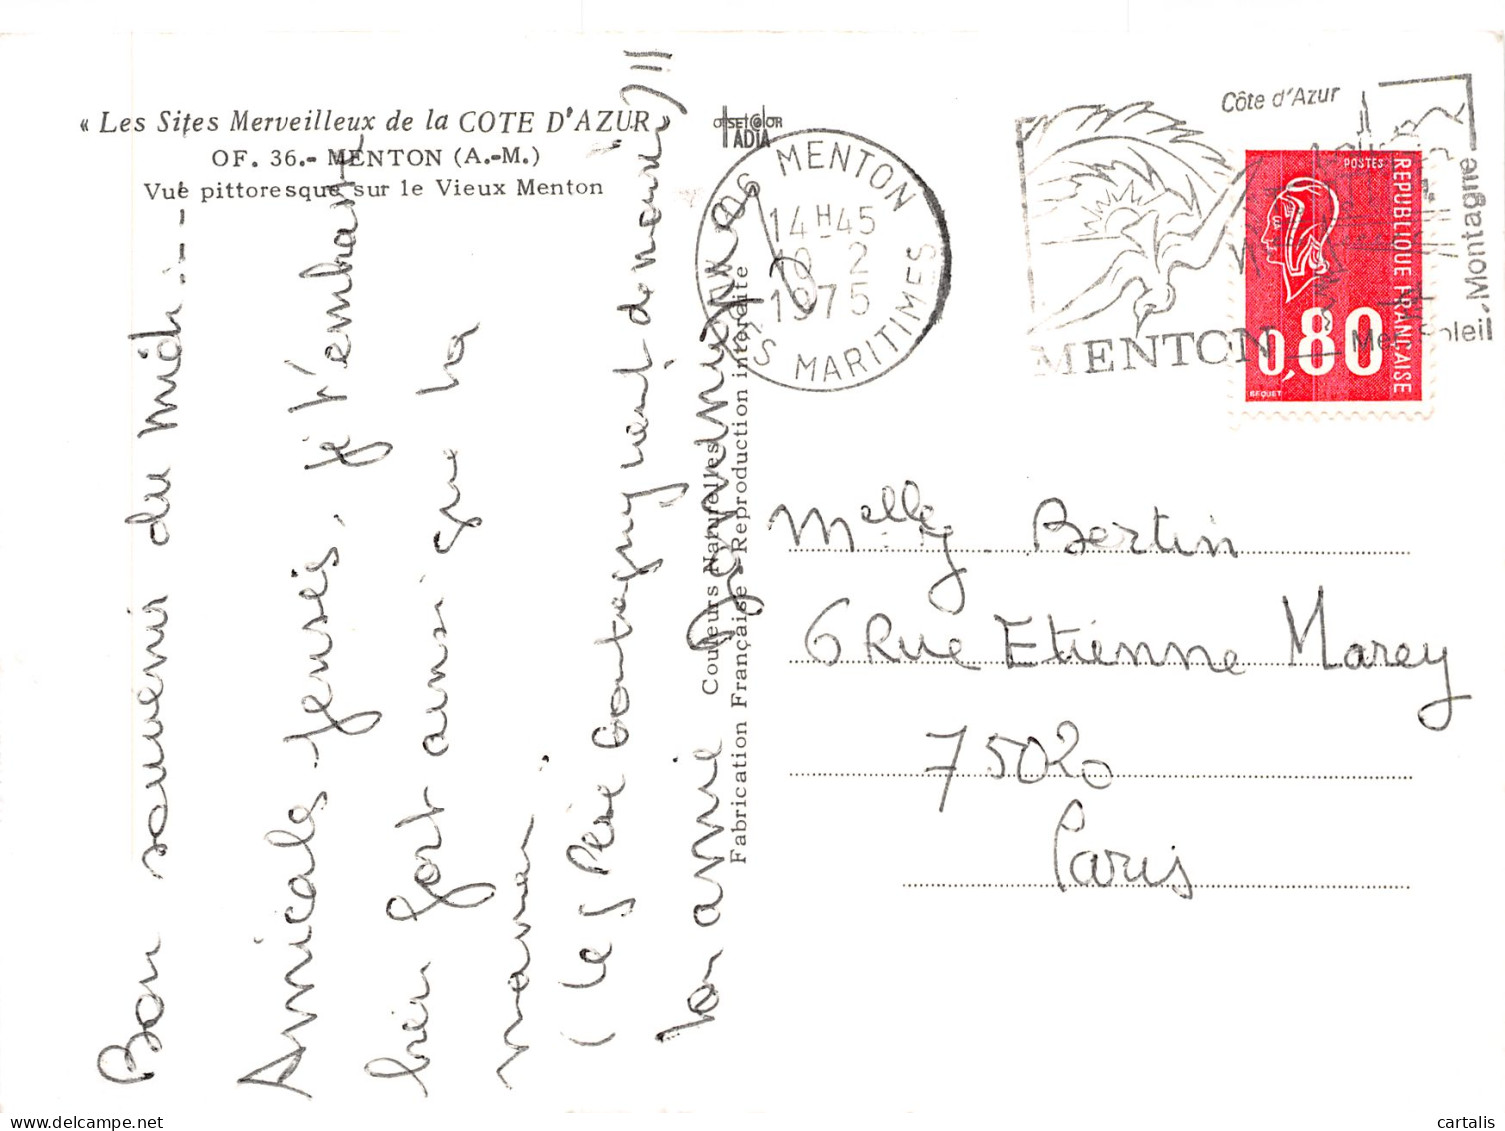 « Les Sites Merveilleux de la COTE D'AZUR »
OF. 36.- MENTON (A.-M.)
Vue pittoresque sur le Vieux Menton
offset color
ADIA
Bon souvenir du midi. - -
Amicales pensées, je t'embrasse
bien fort ainsi que ta
maman.
(Les Père Contagny vient de mourir) !!
Ton amie Dominique
Couleurs Naturelles
Fabrication Française - Reproduction interdite
06 MENTON
14H45
18 2
1975
ALPES MARITIMES
Côte d'Azur
MENTON Mer Soleil Montagne
POSTES
REPUBLIQUE FRANCAISE
0,80
BEQUET
Melle Bertin
6 Rue Etienne Marey
75020
Paris
delcampe.net
cartalis